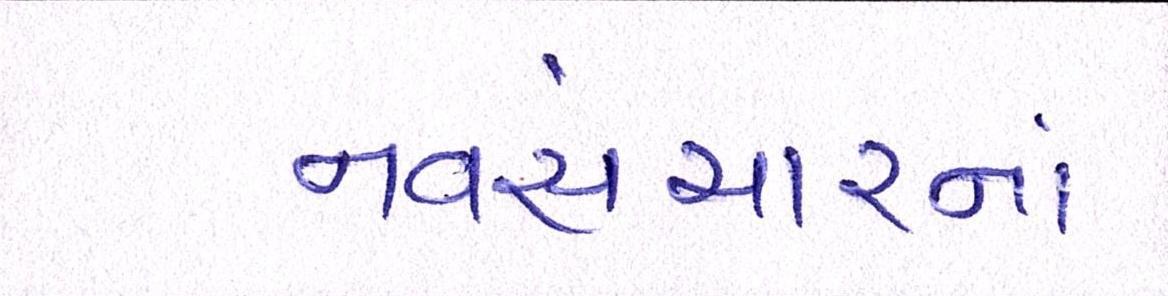 નવસંચારનાં